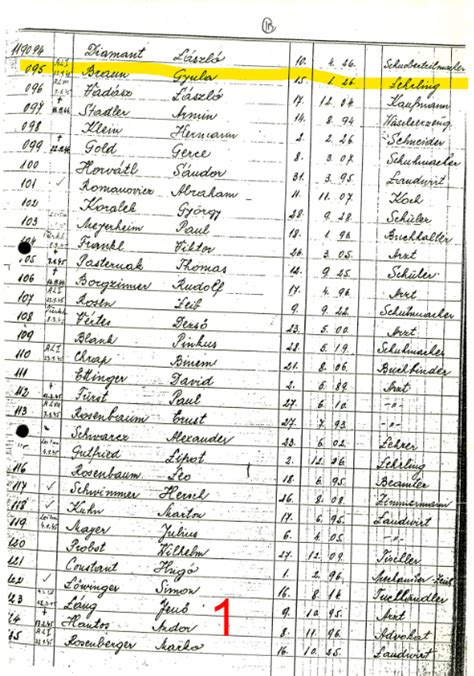 119094 Diamant László 10. 4. 26.
095 Braun Gyula 15. 1. 26. Lehrling
096 Vadász László 17. 12. 04 Kaufmann
097 Stadler Armin 14. 8. 94
098 Klein Hermann 2. 2. 26 Schneider
099 Gold 8. 3. 07. Schuhmacher
100 Horváth Sándor 31. 3. 95 Landwirt
101 ✓ Romanovicz Abraham 11. 11. 07 Koch
102 Koralek György 28. 9. 28. Schüler
103 Meyerheim Paul 18. 1. 96 Buchhalter
104 Frankl Viktor 26. 3. 05. Arzt
105 Pasternak Thomas 12. 9. 25 Schüler
106 Borgzinner Rudolf 17. 4. 96. Arzt
107 Rosen Leib 9. 9. 22. Schuhmacher
108 Vértes Dezső 23. 5. 00. Arzt
109 Blank Pinkus 28. 5. 19 Schuhmacher
110 Chrap Binem 21. 8. 06 Buchbinder
111 Ettinger David 2. 5. 89 Arzt
112 Fürst Paul 27. 6. 10 -"-
113 Rosenbaum Ernst 27. 7. 93 -"-
Schwarcz Alexander 23. 6. 02 Lehrer
Gutfried Lipot 2. 12. 26 Lehrling
116 Rosenbaum Leo 18. 6. 95 Beamter
117 ✓ Schwimmer Hersch 26. 8. 08 Zimmermann
118 ✓ Kuhn Marton 17. 6. 95 Landwirt
119 Mayer Julius 6. 4. 05 -"-
120 Probst Wilhelm 27. 12. 09 Tischler
121 Constant Hugó 1. 2. 96
122 ✓ Löwinger Simon 16. 8. 14 Tuchhändler
123 Lang Jenő 9. 10. 95 Arzt
124 Hantos Andor 8. 11. 96 Advokat
Rosenberger Marko 16. 10. 25. Landwirt
1